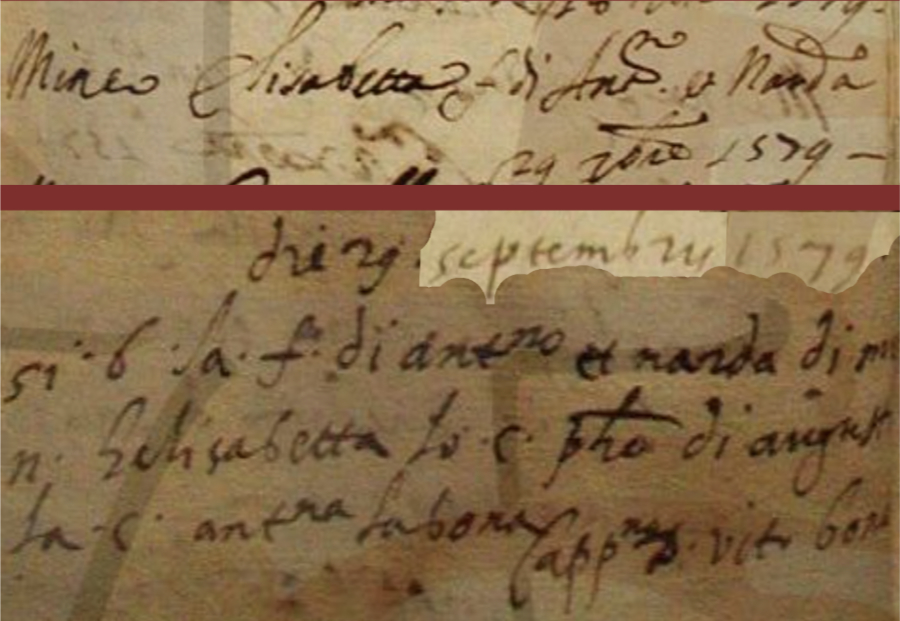 Mineo Elisabetta f. di Ant.o et Narda
29 7bre 1579 –
die 29 septembris 1579
si · b · la · f · di antno et narda di
n · helisabetta lo · c · pho di august
la · c · antna labona Cappns vito bon